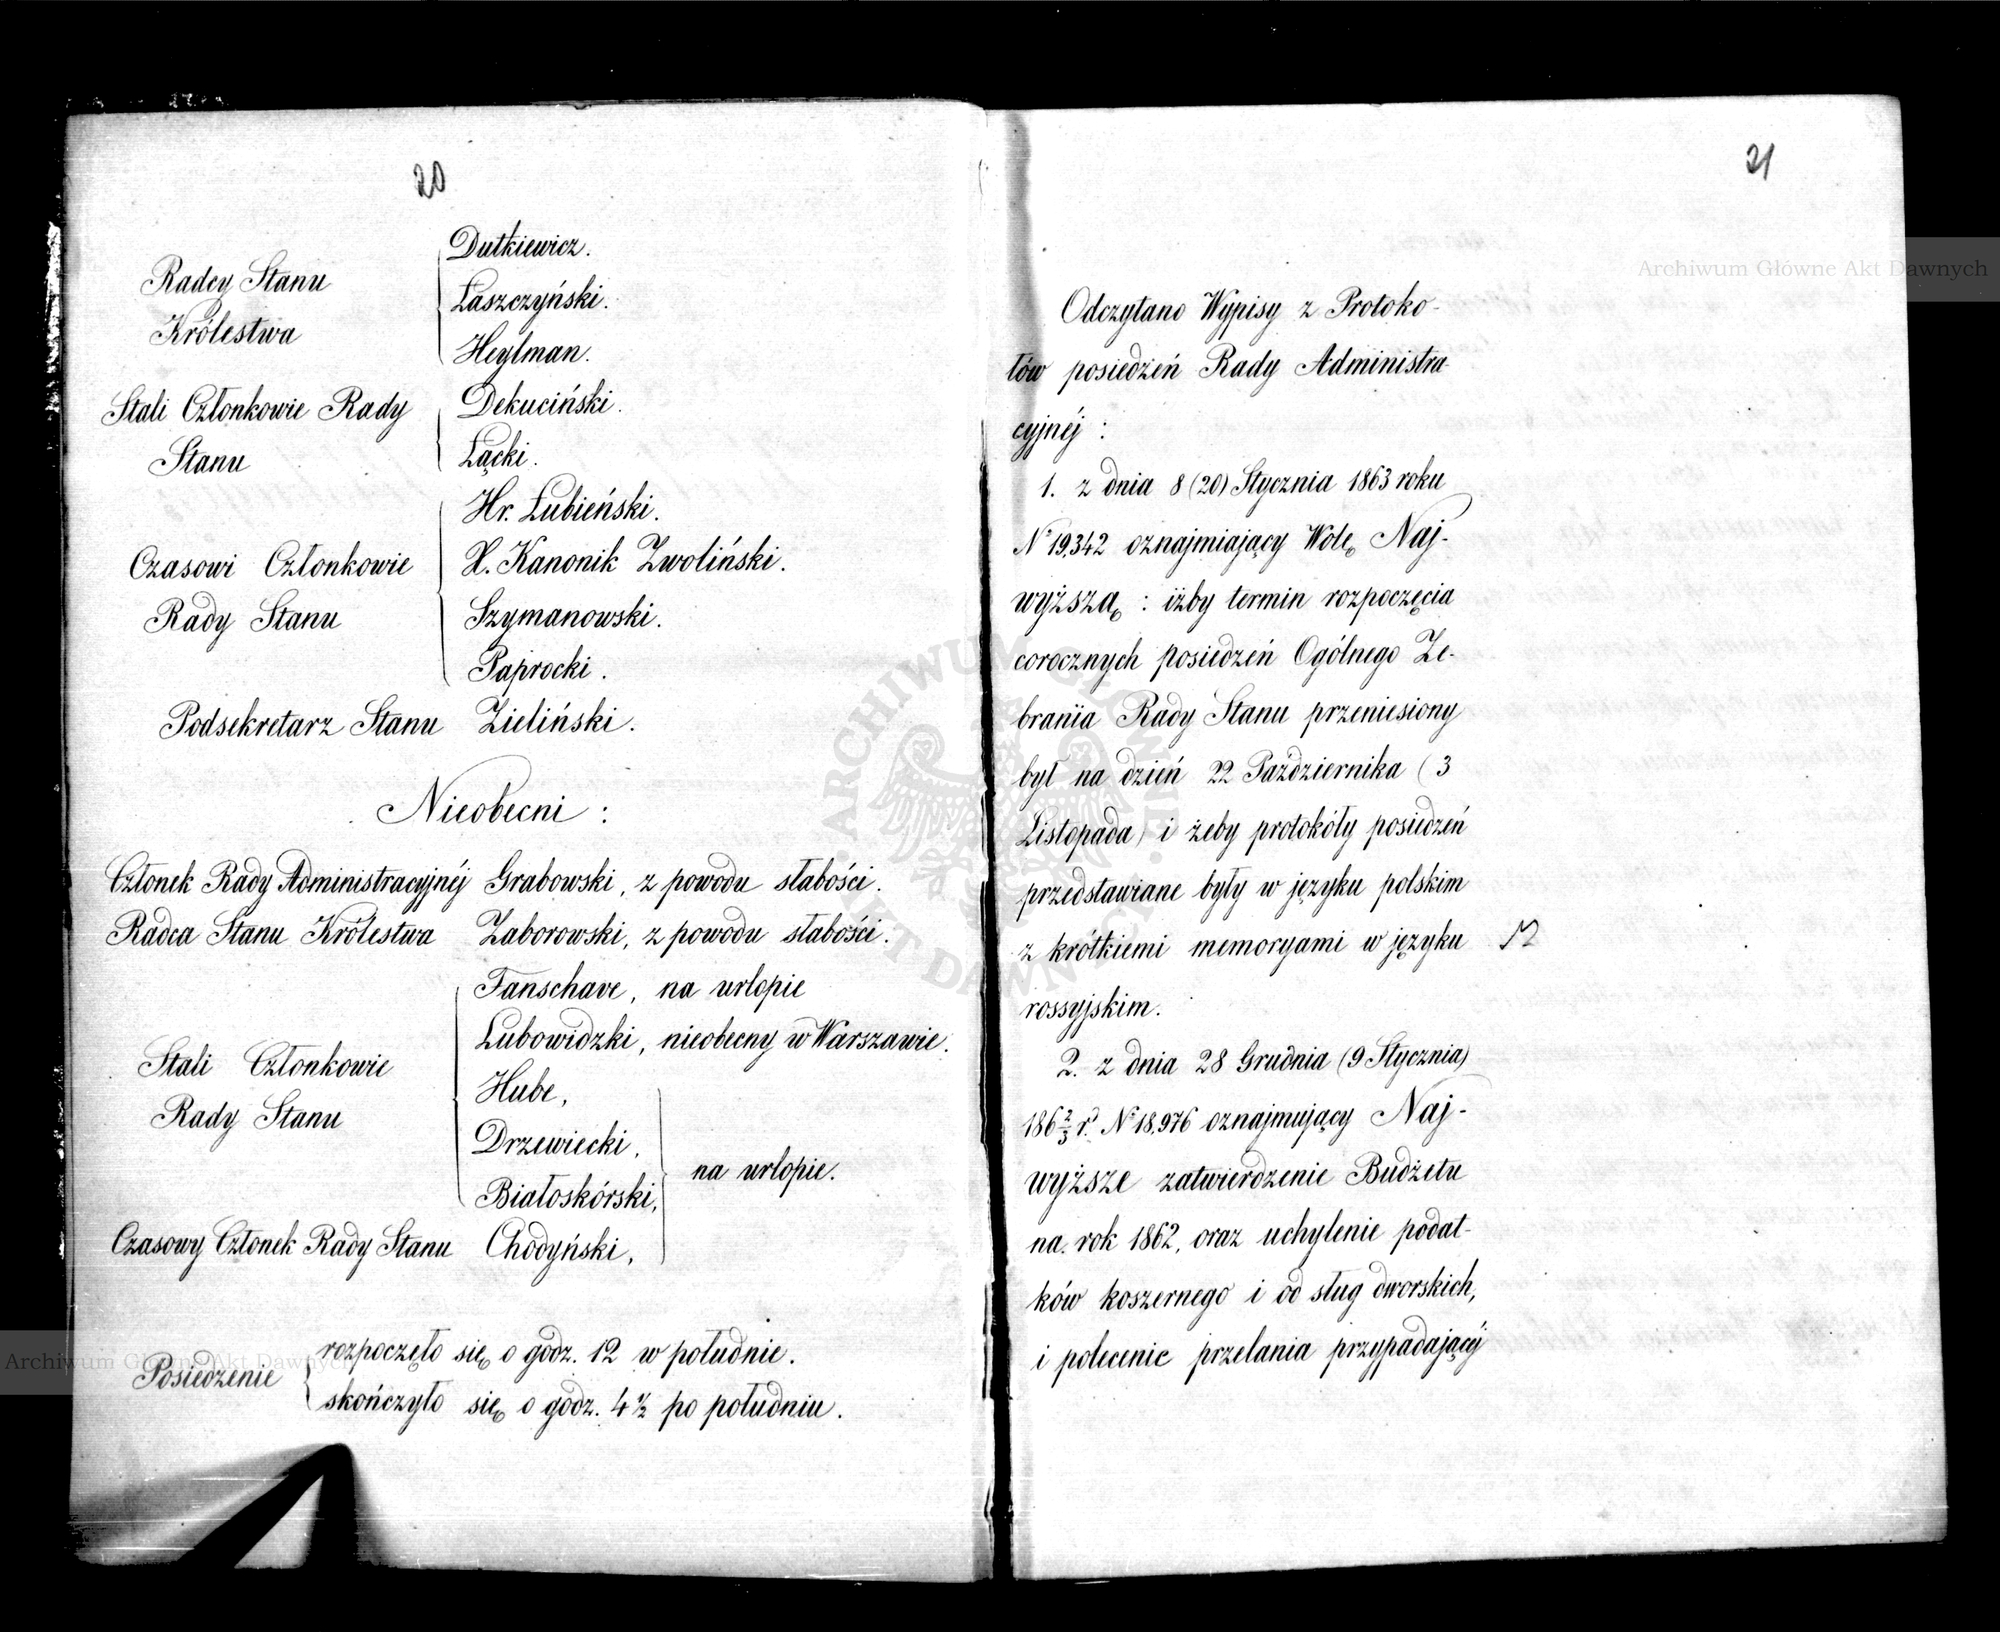 20
Radcy Stanu
Królestwa
Dutkiewicz.
Łaszczyński.
Heylman.
Stali Członkowie Rady
Stanu
Dekuciński.
Łącki.
Czasowi Członkowie
Rady Stanu
Hr. Łubieński.
X. Kanonik Zwoliński.
Szymanowski.
Paprocki.
Podsekretarz Stanu Zieliński.
Nieobecni:
Członek Rady Administracyjnéj Grabowski, z powodu słabości.
Radca Stanu Królestwa Zaborowski, z powodu słabości.
Stali Członkowie
Rady Stanu
Fanschave, na urlopie
Lubowidzki, nieobecny w Warszawie.
Hube,
Drzewiecki,
Białoskórski,
na urlopie.
Czasowy Członek Rady Stanu Chodyński,
Posiedzenie
rozpoczęło się o godz. 12 w południe.
skończyło się o godz. 4 1/2 po południu.
Archiwum Główne Akt Dawnych
21
Archiwum Główne Akt Dawnych
Odczytano Wypisy z Protoko-
łów posiedzeń Rady Administra-
cyjnéj:
1. z dnia 8 (20) Stycznia 1863 roku
N° 19,342 oznajmiający Wolę Naj-
wyższą: iżby termin rozpoczęcia
corocznych posiedzeń Ogólnego Ze-
brania Rady Stanu przeniesiony
był na dzień 22 Października (3
Listopada) i żeby protokóły posiedzeń
przedstawiane były w języku polskim
z krótkiemi memoryami w języku
rossyjskim.
2. z dnia 28 Grudnia (9 Stycznia)
186 2/3 r. N° 18,976 oznajmujący Naj-
wyższe zatwierdzenie Budżetu
na rok 1862, oraz uchylenie podat-
ków koszernego i od sług dworskich,
i polecenie przelania przypadającéj
ARCHIWUM GŁÓWNE AKT DAWNYCH